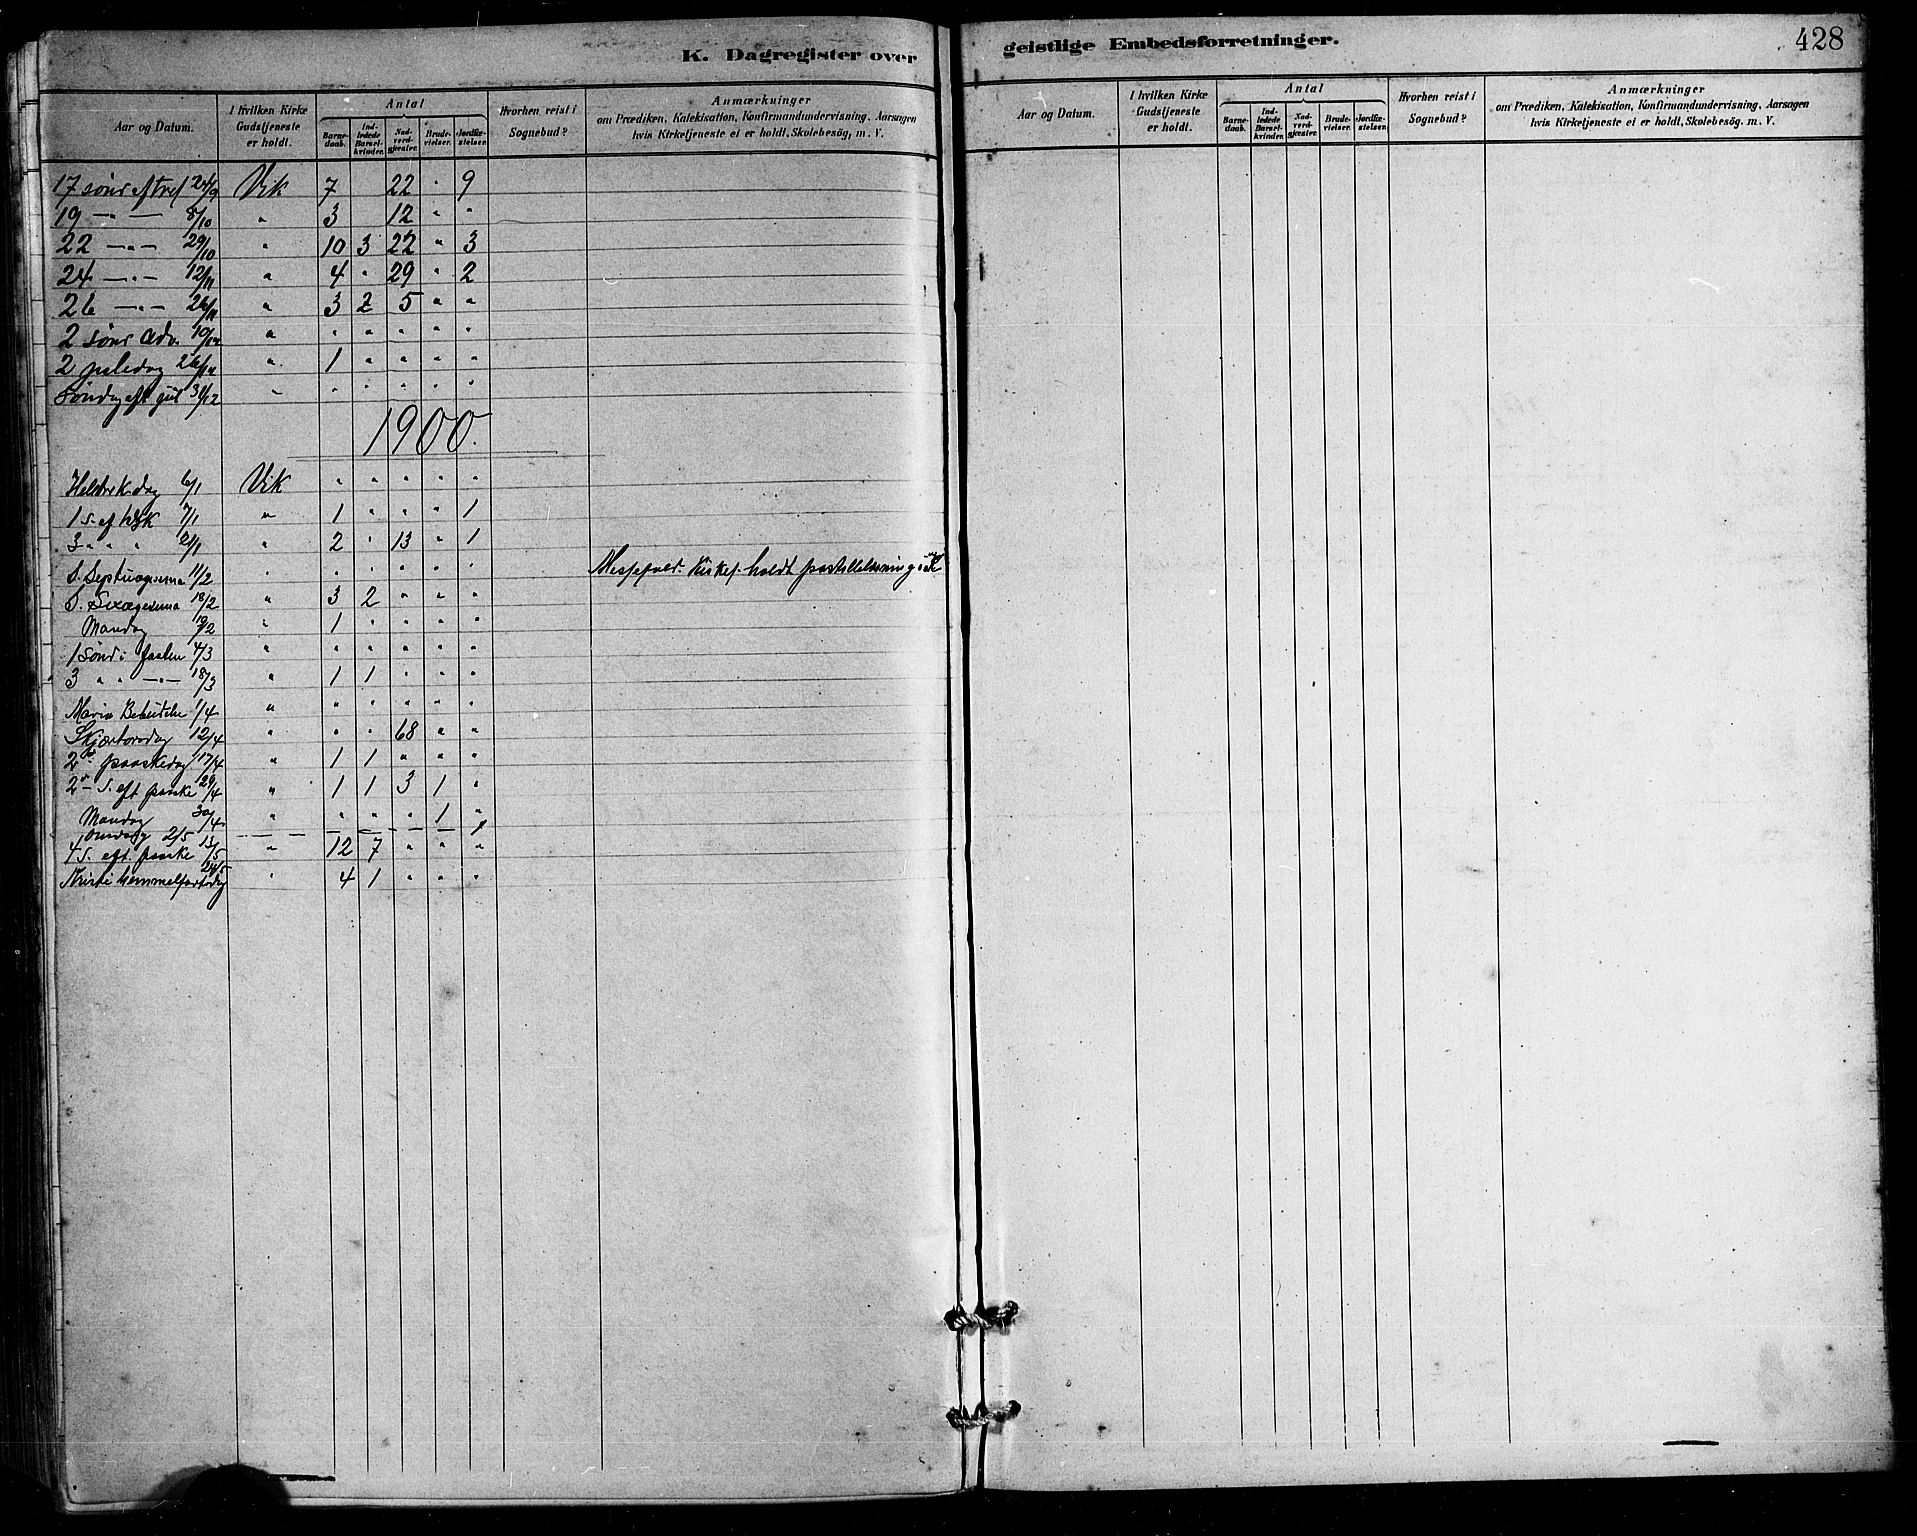 K. Dagregister over
Aar og Datum. I hvilken Kirke Gudstjeneste er holdt. Antal Barnedaab. Indledede Barselkvinder. Nadverdgjæster. Brudevielser. Jordfæstelser. Hvorhen reist i Sognebud? Anmærkninger om Prædiken, Katekisation, Konfirmandundervisning, Aarsagen hvis Kirketjeneste ei er holdt, Skolebesög, m. V.
17 sønd eft tref 24/9 Vik 7 22 " 9
19 — " — 8/10 " 3 12 " "
22 — " — 29/10 " 10 3 22 " 3
24 — " — 12/11 " 4 " 29 " 2
26 — " — 26/11 " 3 2 5 " "
2 sønd Adv. 10/12 " " " " " "
2 juledag 26/12 " 1 " " " "
Søndag eft jul 31/12 " " " " " "
1900.
Helstrekdag 6/1 Vik " " " " "
1 s. ef h3k 7/1 " 1 " " " 1
3 " " " 21/1 " 2 " 13 " 1
S. Septuagesima 11/2 " " " " " " Messefald. Kirkes. holdt postillelæsning
S. Sexagesima 18/2 " 3 2 " " "
Mandag 19/2 " 1 " " " "
1 Sønd i fasten 4/3 " " " " " "
3 " " — " — 18/3 " 1 1 " " "
Maria Bebudelse 1/4 " " " " " "
Skjærtorsdag 12/4 " " " 68 " "
2den paaskedag 17/4 " 1 1 " " "
2den S. eft paaske 29/4 " 1 1 3 1 "
Mandag 30/4 " " " " 1 "
onsdag 2/5 — — — — — — 1
4 S. eft. paaske 13/5 " 12 7 " " "
Kristi hemmelfartsdag 24/5 " 4 1 " " "
geistlige Embedsforretninger.
428
Aar og Datum. I hvilken Kirke Gudstjeneste er holdt. Antal Barnedaab. Indledede Barselkvinder. Nadverdgjæster. Brudevielser. Jordfæstelser. Hvorhen reist i Sognebud? Anmærkninger om Prædiken, Katekisation, Konfirmandundervisning, Aarsagen hvis Kirketjeneste ei er holdt, Skolebesög, m. V.